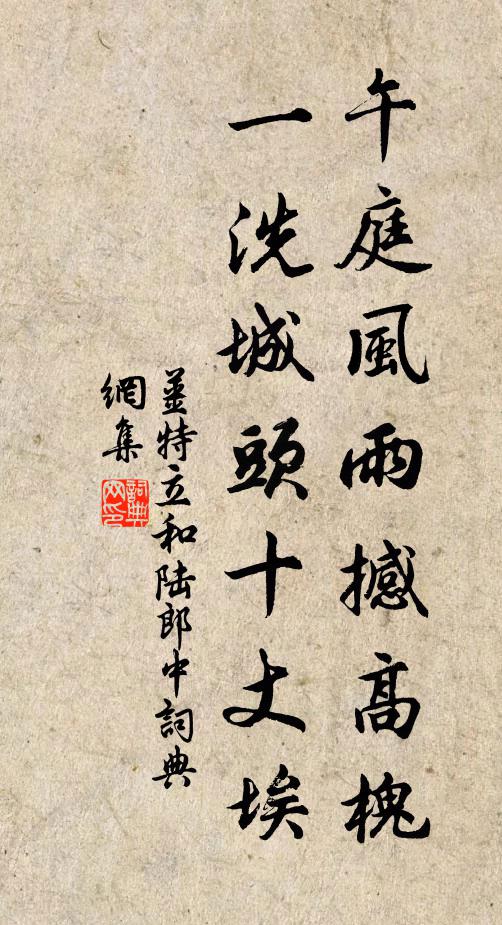 午庭風雨撼高槐
一洗城頭十丈埃
姜特立和陆郎中詞典
網集
詞典
网印